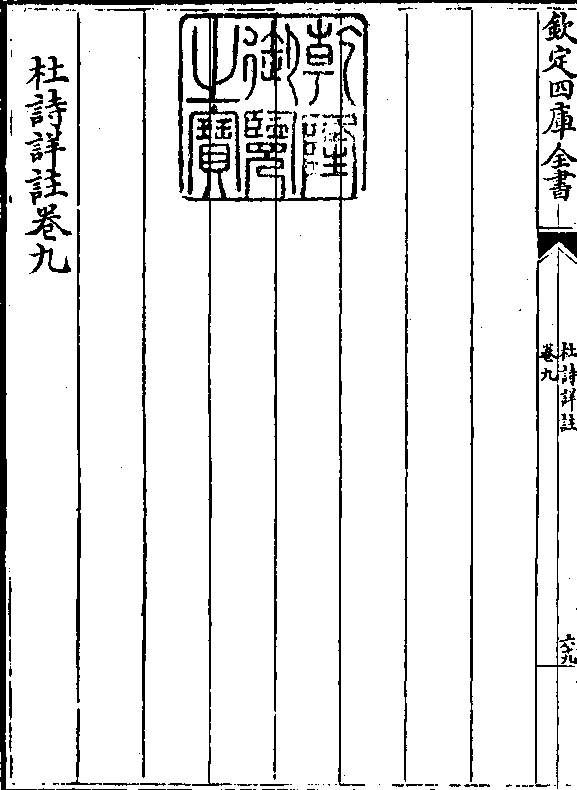 欽定四庫全書
杜詩詳註
卷九
六九
乾隆
御覽
之寶
杜詩詳註卷九